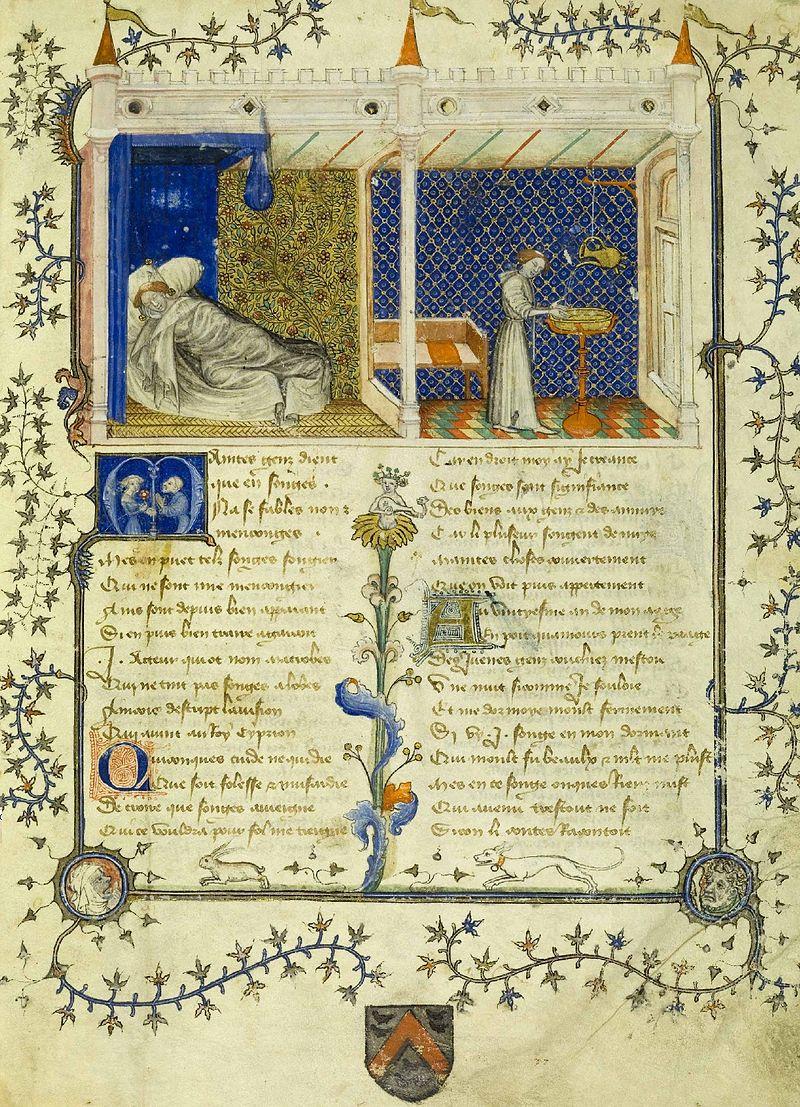 Maintes genz dient
que en songes
Na se fables non z
menconges
Mes en puet telz songes songier
Qui ne sont mie mencongier
Ains sont depuis bien apparant
Si en puis bien traire a garant
. J . Acteur qui ot nom macrobes
Qui ne tint pas songes a lobes
Ancois descript la vision
Qui avint au Roy Cyprion
Quiconques cuide ne qui die
Que soit folesse z musardie
De croire que songes aviengne
Qui ce vouldra pour fol me tiengne
Car en droit moy ay Je creance
Que songes sont signifiance
Des biens aux genz z des anuiz
Car li pluseur songent de nuiz
Maintes choses couvertement
Que on voit puis appertement
Au vintyesme an de mon aage
En point quamours prent le paage
Des Juenes genz couchiez mestoie
Une nuit si comme Je souloie
Et me dormoye moult forment
Si vy . J . songe en mon dormant
Qui moult fu beaulx z mlt me plust
Mes en ce songe onques Riens nust
Qui avenu trestout ne soit
Si con li contes Racontoit